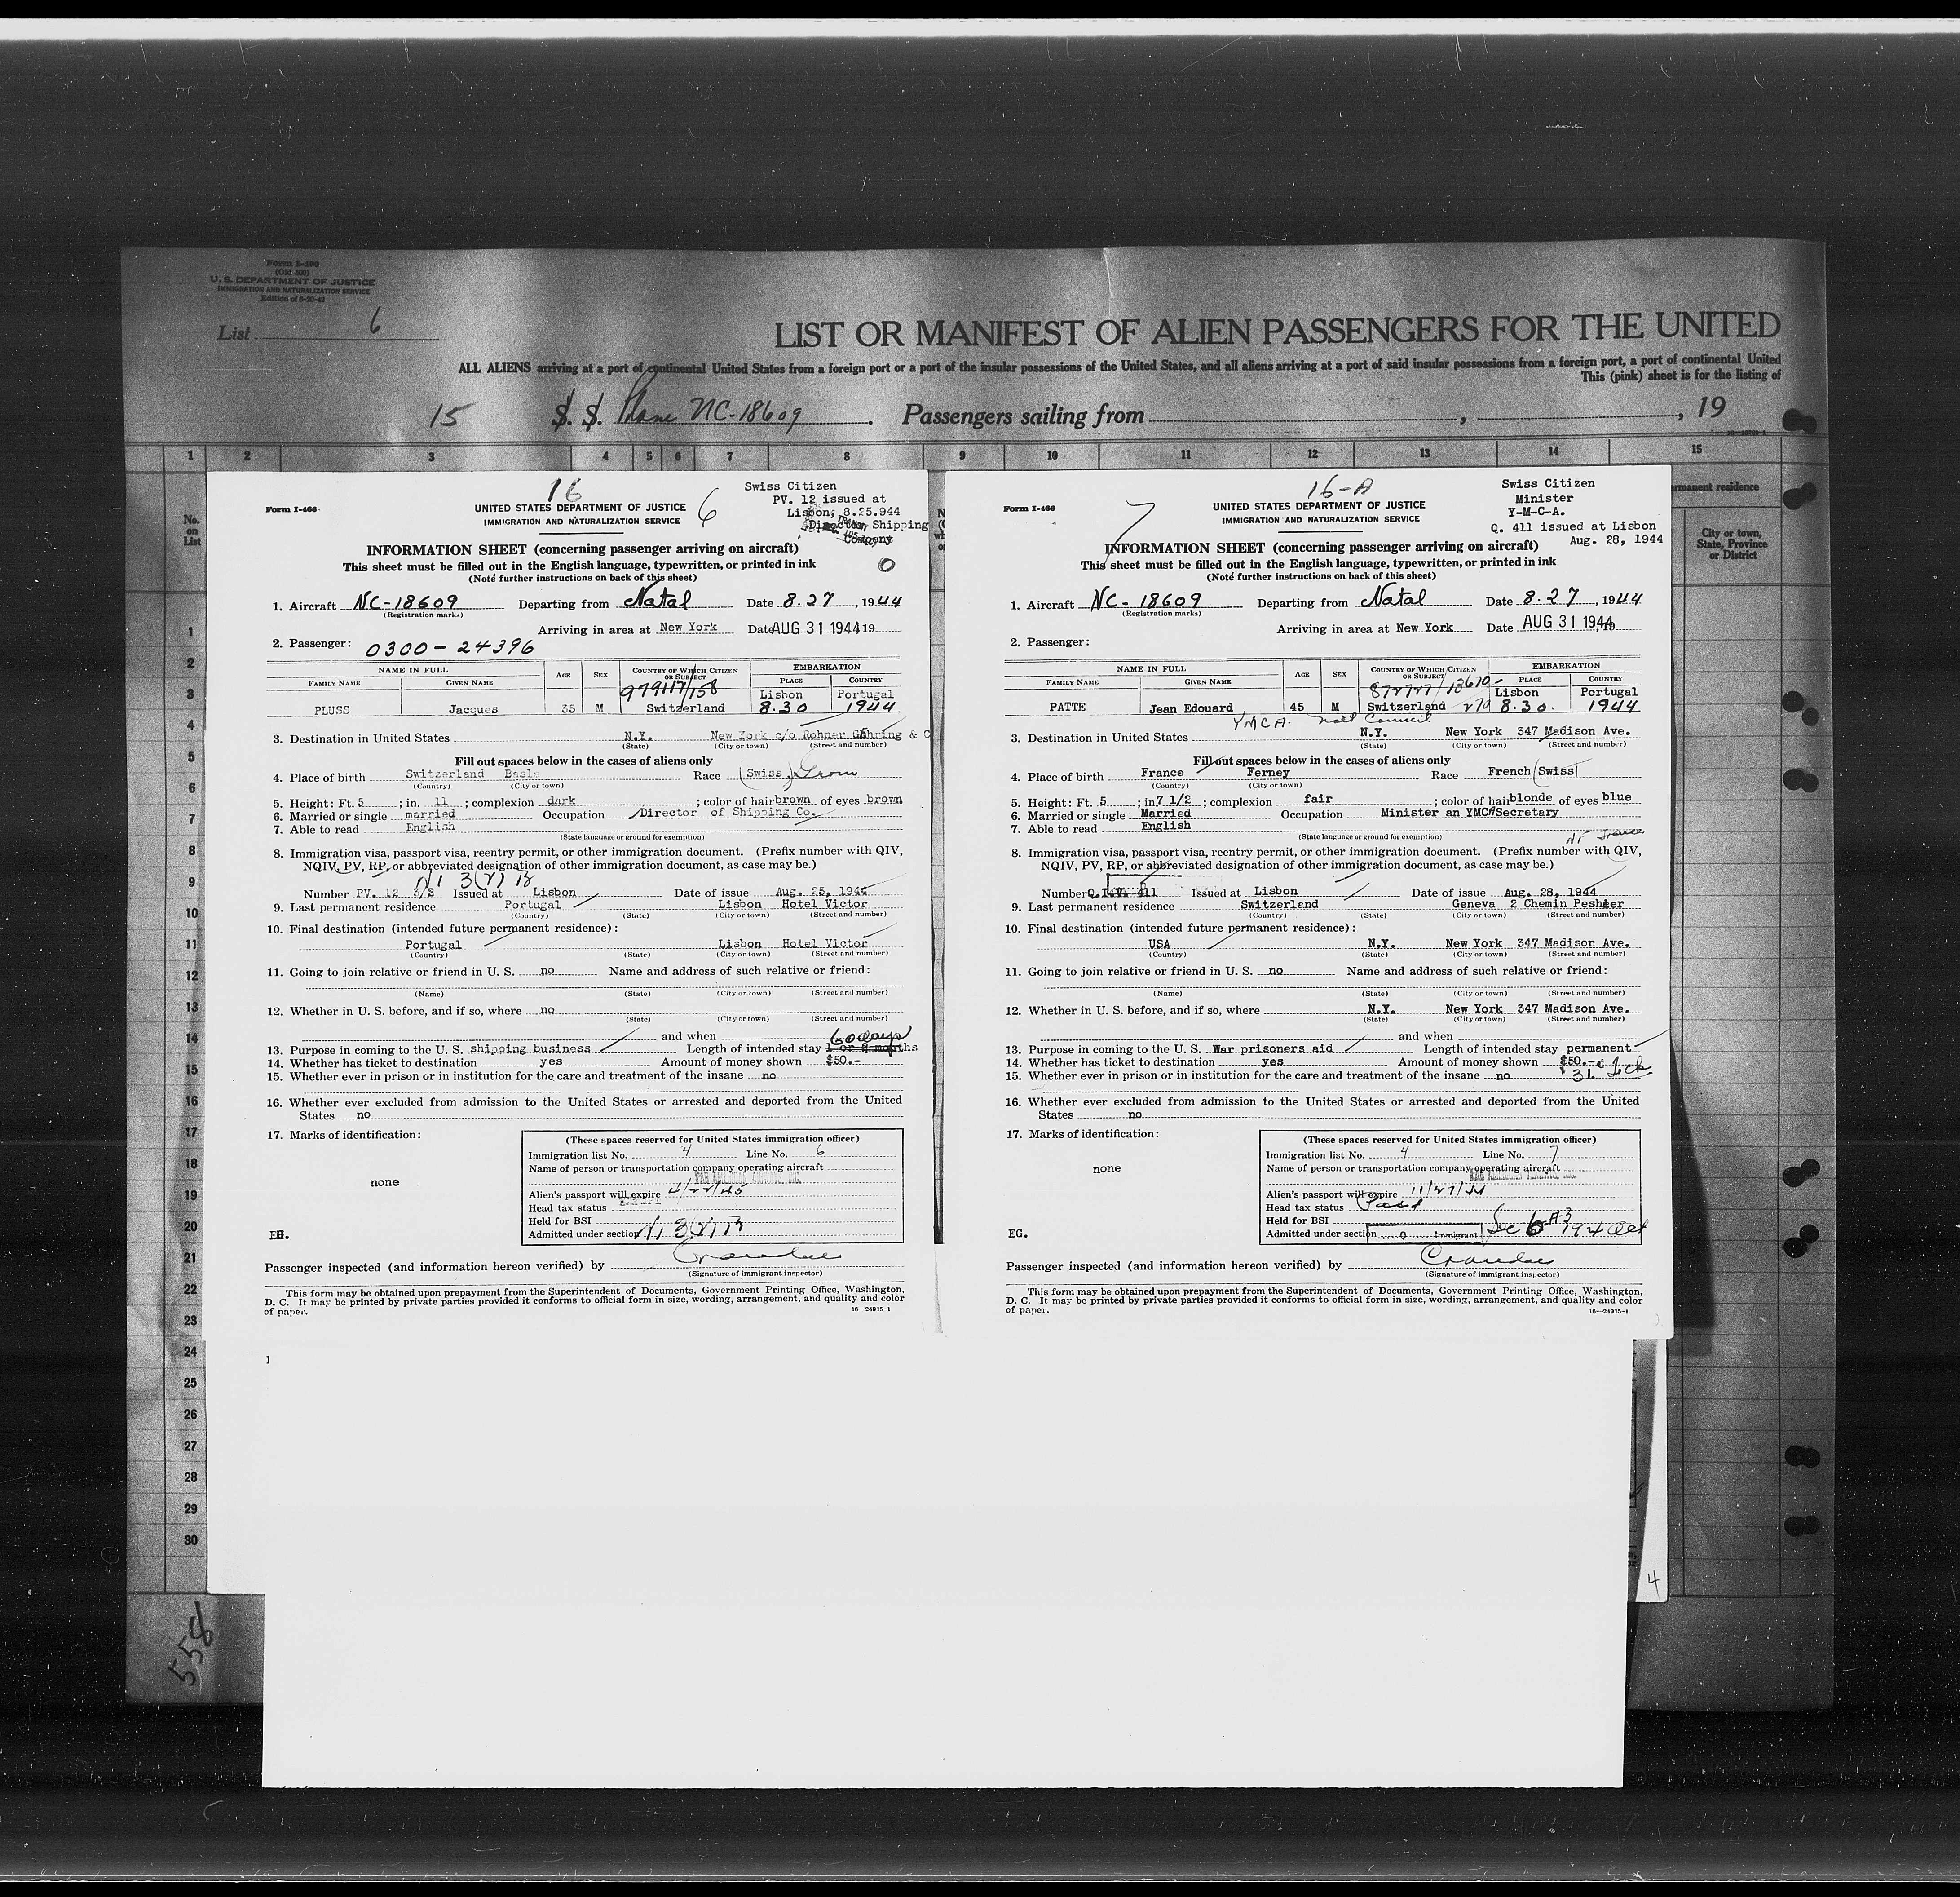 Form I-466
(Old 500)
U. S. DEPARTMENT OF JUSTICE
IMMIGRATION AND NATURALIZATION SERVICE
List 6
LIST OR MANIFEST OF ALIEN PASSENGERS FOR THE UNITED
ALL ALIENS arriving at a port of continental United States from a foreign port or a part of the insular possessions of the United States, and all aliens arriving at a port of said insular possessions from a foreign port, a part of continental United
This (pink) sheet is for the listing of
15 S. S. Plane NC-18609. Passengers sailing from , , 19
1 2 3 4 5 6 7 8 9 10 11 12 13 14 15
No. on List
rmanent residence
City or town, State, Province or District
1
2
3
4
5
6
7
8
9
10
11
12
13
14
15
16
17
18
19
20
21
22
23
24
25
26
27
28
29
30
558
4
16
6
Swiss Citizen
PV. 12 issued at
Lisbon, 8.25.944
Director Shipping
Company
0
Form I-466
UNITED STATES DEPARTMENT OF JUSTICE
IMMIGRATION AND NATURALIZATION SERVICE
INFORMATION SHEET (concerning passenger arriving on aircraft)
This sheet must be filled out in the English language, typewritten, or printed in ink
(Note further instructions on back of this sheet)
1. Aircraft NC-18609 Departing from Natal Date 8.27, 1944
(Registration marks)
Arriving in area at New York Date AUG 31 1944 19
2. Passenger: 0300-24396
NAME IN FULL AGE SEX COUNTRY OF WHICH CITIZEN OR SUBJECT EMBARKATION
FAMILY NAME GIVEN NAME PLACE COUNTRY
979117/158 Lisbon Portugal
PLUSS Jacques 35 M Switzerland 8.30 1944
3. Destination in United States N.Y. New York c/o Rohner Gehring & C
(State) (City or town) (Street and number)
Fill out spaces below in the cases of aliens only
4. Place of birth Switzerland Basle Race (Swiss)
(Country) (City or town)
5. Height: Ft. 5; in. 11; complexion dark; color of hair brown of eyes brown
6. Married or single married Occupation Director of Shipping Co.
7. Able to read English
(State language or ground for exemption)
8. Immigration visa, passport visa, reentry permit, or other immigration document. (Prefix number with QIV,
NQIV, PV, RP, or abbreviated designation of other immigration document, as case may be.)
3(2) B
Number PV. 12 3/2 Issued at Lisbon Date of issue Aug. 25, 1944
9. Last permanent residence Portugal Lisbon Hotel Victor
(Country) (State) (City or town) (Street and number)
10. Final destination (intended future permanent residence):
Portugal Lisbon Hotel Victor
(Country) (State) (City or town) (Street and number)
11. Going to join relative or friend in U. S. no Name and address of such relative or friend:
(Name) (State) (City or town) (Street and number)
12. Whether in U. S. before, and if so, where no
(State) (City or town) (Street and number)
and when
60 days
13. Purpose in coming to the U. S. shipping business Length of intended stay 1 or 2 months
14. Whether has ticket to destination yes Amount of money shown $50.-
15. Whether ever in prison or in institution for the care and treatment of the insane no
16. Whether ever excluded from admission to the United States or arrested and deported from the United
States no
17. Marks of identification:
none
(These spaces reserved for United States immigration officer)
Immigration list No. 4 Line No. 6
Name of person or transportation company operating aircraft
PAN AMERICAN AIRWAYS INC.
Alien's passport will expire 4/22/45
Head tax status
Held for BSI
Admitted under section 3(2) B
EG.
Passenger inspected (and information hereon verified) by
(Signature of immigrant inspector)
This form may be obtained upon prepayment from the Superintendent of Documents, Government Printing Office, Washington,
D. C. It may be printed by private parties provided it conforms to official form in size, wording, arrangement, and quality and color
of paper. 16—24915-1
16-A
7
Swiss Citizen
Minister
Y-M-C-A.
Q. 411 issued at Lisbon
Aug. 28, 1944
Form I-466
UNITED STATES DEPARTMENT OF JUSTICE
IMMIGRATION AND NATURALIZATION SERVICE
INFORMATION SHEET (concerning passenger arriving on aircraft)
This sheet must be filled out in the English language, typewritten, or printed in ink
(Note further instructions on back of this sheet)
1. Aircraft NC-18609 Departing from Natal Date 8.27, 1944
(Registration marks)
Arriving in area at New York Date AUG 31 1944, 19
2. Passenger:
NAME IN FULL AGE SEX COUNTRY OF WHICH CITIZEN OR SUBJECT EMBARKATION
FAMILY NAME GIVEN NAME PLACE COUNTRY
Lisbon Portugal
PATTE Jean Edouard 45 M Switzerland 8.30. 1944
YMCA. Natl Council
3. Destination in United States N.Y. New York 347 Madison Ave.
(State) (City or town) (Street and number)
Fill out spaces below in the cases of aliens only
4. Place of birth France Ferney Race French (Swiss)
(Country) (City or town)
5. Height: Ft. 5; in. 7 1/2; complexion fair; color of hair blonde of eyes blue
6. Married or single Married Occupation Minister an YMCA Secretary
7. Able to read English
(State language or ground for exemption)
8. Immigration visa, passport visa, reentry permit, or other immigration document. (Prefix number with QIV,
NQIV, PV, RP, or abbreviated designation of other immigration document, as case may be.)
Number Q.I.V. 411 Issued at Lisbon Date of issue Aug. 28, 1944
9. Last permanent residence Switzerland Geneva 2 Chemin Peshier
(Country) (State) (City or town) (Street and number)
10. Final destination (intended future permanent residence):
USA N.Y. New York 347 Madison Ave.
(Country) (State) (City or town) (Street and number)
11. Going to join relative or friend in U. S. no Name and address of such relative or friend:
(Name) (State) (City or town) (Street and number)
12. Whether in U. S. before, and if so, where N.Y. New York 347 Madison Ave.
(State) (City or town) (Street and number)
and when
13. Purpose in coming to the U. S. War prisoners aid Length of intended stay permanent
14. Whether has ticket to destination yes Amount of money shown $50.-
15. Whether ever in prison or in institution for the care and treatment of the insane no
16. Whether ever excluded from admission to the United States or arrested and deported from the United
States no
17. Marks of identification:
none
(These spaces reserved for United States immigration officer)
Immigration list No. 4 Line No. 7
Name of person or transportation company operating aircraft
PAN AMERICAN AIRWAYS, INC.
Alien's passport will expire 11/27/44
Head tax status Paid
Held for BSI
Admitted under section Immigrant Sec 6 A-3 1924 Act
EG.
Passenger inspected (and information hereon verified) by
(Signature of immigrant inspector)
This form may be obtained upon prepayment from the Superintendent of Documents, Government Printing Office, Washington,
D. C. It may be printed by private parties provided it conforms to official form in size, wording, arrangement, and quality and color
of paper. 16—24915-1